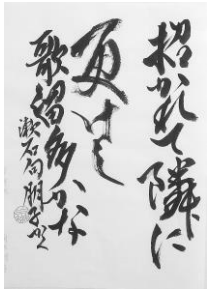 招かれて隣に
更けし
歌留多かな
漱石句 朋子かく